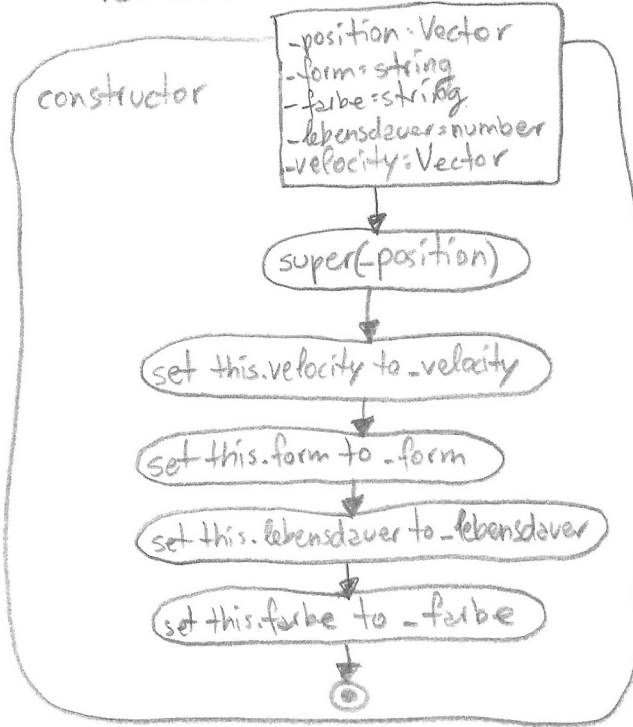 constructor
_position: Vector
_form: string
_farbe: string
_lebensdauer: number
_velocity: Vector
super(_position)
set this.velocity to _velocity
set this.form to _form
set this.lebensdauer to _lebensdauer
set this.farbe to _farbe